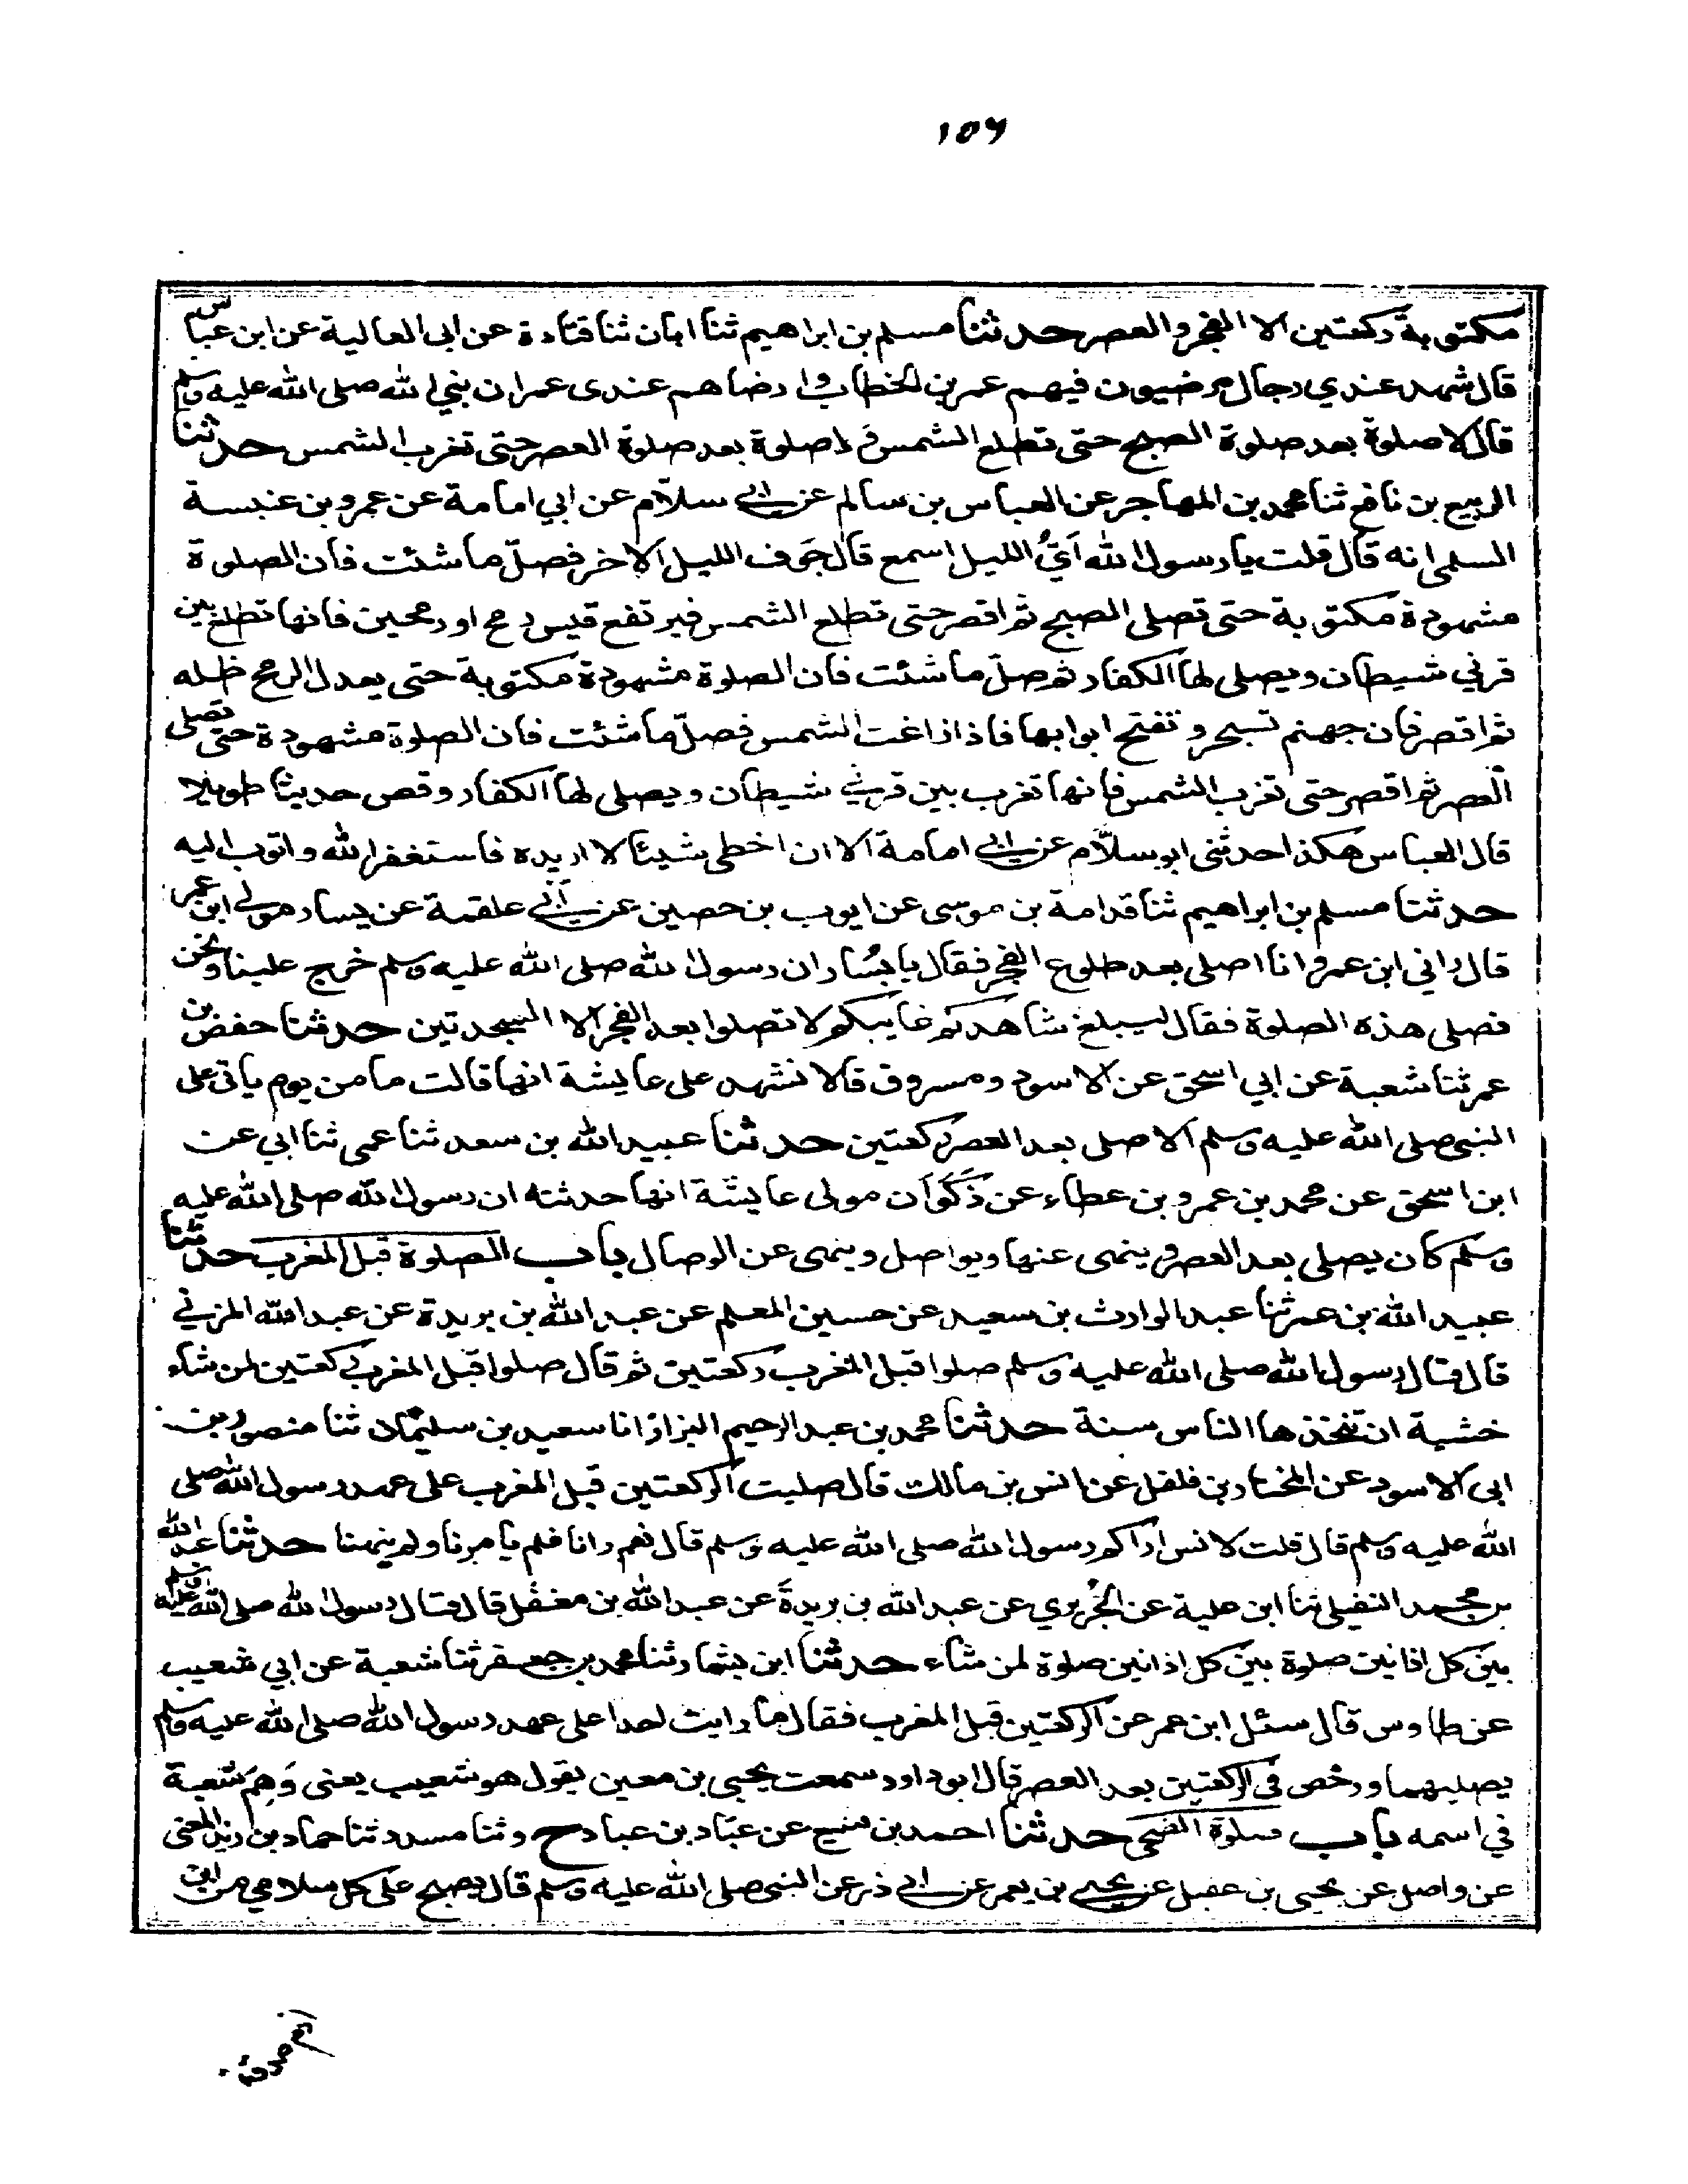 ١٥٦
مكتوبة ركعتين الا الفجر والعصر حدثنا مسلم بن ابراهيم ثنا ابان ثنا قتادة عن ابي العالية عن ابن عباس
قال شهد عندي رجال مرضيون فيهم عمر بن الخطاب وارضاهم عندى عمر ان نبي الله صلى الله عليه وسلم
قال لا صلوة بعد صلوة الصبح حتى تطلع الشمس ولا صلوة بعد صلوة العصر حتى تغرب الشمس حدثنا
الربيع بن نافع ثنا محمد بن المهاجر عن العباس بن سالم عن ابي سلّام عن ابي امامة عن عمرو بن عنبسة
السلمى انه قال قلت يا رسول الله اَيُّ الليل اسمع قال جَوف الليل الاخر فصلّ ما شئت فان الصلوة
مشهودة مكتوبة حتى تصلى الصبح ثم اقصر حتى تطلع الشمس فيرتفع قيس رمح او رمحين فانها تطلع بين
قرني شيطان ويصلى لها الكفار ثم صلّ ما شئت فان الصلوة مشهودة مكتوبة حتى يعدل الرمح ظله
ثم اقصر فان جهنم تسجر وتفتح ابوابها فاذا زاغت الشمس فصلّ ما شئت فان الصلوة مشهودة حتى تصلى
العصر ثم اقصر حتى تغرب الشمس فانها تغرب بين قرني شيطان ويصلى لها الكفار وقص حديثا طويلا
قال العباس هكذا حدثنى ابو سلّام عن ابي امامة الا ان اخطى شيئا لا اريده فاستغفر الله واتوب اليه
حدثنا مسلم بن ابراهيم ثنا قدامة بن موسى عن ايوب بن حصين عن ابي علقمة عن يسار مولى ابن عمر
قال راني ابن عمر وانا اصلى بعد طلوع الفجر فقال يا يسار ان رسول الله صلى الله عليه وسلم خرج علينا ونحن
نصلى هذه الصلوة فقال ليبلغ شاهدكم غايبكم لا تصلوا بعد الفجر الا السجدتين حدثنا حفص بن
عمر ثنا شعبة عن ابي اسحق عن الاسود ومسروق قالا نشهد على عايشة انها قالت ما من يوم ياتى على
النبى صلى الله عليه وسلم الا صلى بعد العصر ركعتين حدثنا عبيد الله بن سعد ثنا عمى ثنا ابي عن
ابن اسحق عن محمد بن عمرو بن عطاء عن ذَكَوَان مولى عايشة انها حدثته ان رسول الله صلى الله عليه
وسلم كان يصلى بعد العصر وينهى عنها ويواصل وينهى عن الوصال باب الصلوة قبل المغرب حدثنا
عبيد الله بن عمر ثنا عبد الوارث بن سعيد عن حسين المعلم عن عبد الله بن بريدة عن عبد الله المزني
قال قال رسول الله صلى الله عليه وسلم صلوا قبل المغرب ركعتين ثم قال صلوا قبل المغرب ركعتين لمن شاء
خشية ان يتخذها الناس سنة حدثنا محمد بن عبد الرحيم البزاز انا سعيد بن سليمان ثنا منصور بن
ابى الاسود عن المختار بن فلفل عن انس بن مالك قال صليت الركعتين قبل المغرب على عهد رسول الله صلى
الله عليه وسلم قال قلت لانس اراكم رسول الله صلى الله عليه وسلم قال نعم رانا فلم يامرنا ولم ينهنا حدثنا عبد الله
بن محمد النفيلى ثنا ابن علية عن الجُريري عن عبد الله بن بريدة عن عبد الله بن مغفل قال قال رسول الله صلى الله عليه وسلم
بين كل اذانين صلوة بين كل اذانين صلوة لمن شاء حدثنا ابن بشار ثنا محمد بن جعفر ثنا شعبة عن ابي شعيب
عن طاوس قال سئل ابن عمر عن الركعتين قبل المغرب فقال ما رايت احدا على عهد رسول الله صلى الله عليه وسلم
يصليهما ورخص في الركعتين بعد العصر قال ابو داود سمعت يحيى بن معين يقول هو شعيب يعنى وَهِمَ شعبة
في اسمه باب صلوة الضحى حدثنا احمد بن منيع عن عبّاد بن عباد ح وثنا مسدد ثنا حماد بن زيد المعنى
عن واصل عن يحيى بن عقيل عن يحيى بن يعمر عن ابي ذر عن النبى صلى الله عليه وسلم قال يصبح على كل سلامي من ابن